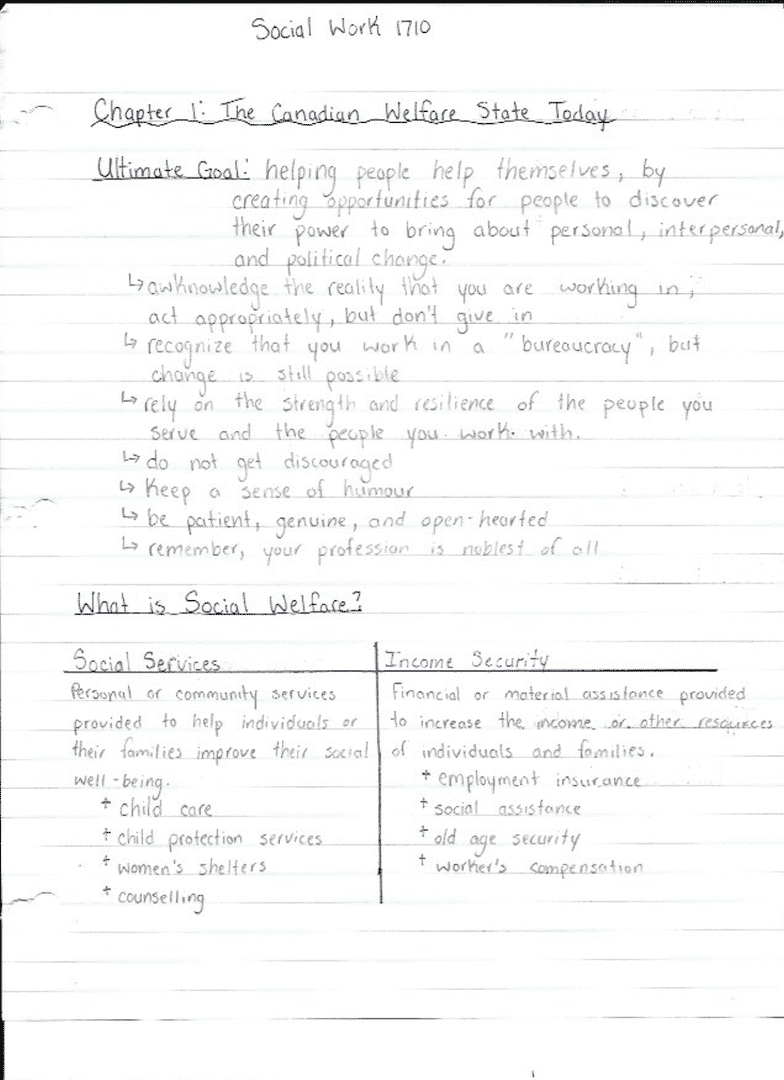 Social Work 1710
Chapter 1: The Canadian Welfare State Today
Ultimate Goal: helping people help themselves, by
creating opportunities for people to discover
their power to bring about personal, interpersonal,
and political change.
↳ awknowledge the reality that you are working in,
act appropriately, but don't give in
↳ recognize that you work in a "bureaucracy", but
change is still possible
↳ rely on the strength and resilience of the people you
serve and the people you work with.
↳ do not get discouraged
↳ Keep a sense of humour
↳ be patient, genuine, and open-hearted
↳ remember, your profession is noblest of all
What is Social Welfare?
Social Services
Personal or community services
provided to help individuals or
their families improve their social
well-being.
+ child care
+ child protection services
+ women's shelters
+ counselling
Income Security
Financial or material assistance provided
to increase the income or other resources
of individuals and families.
+ employment insurance
+ social assistance
+ old age security
+ worker's compensation